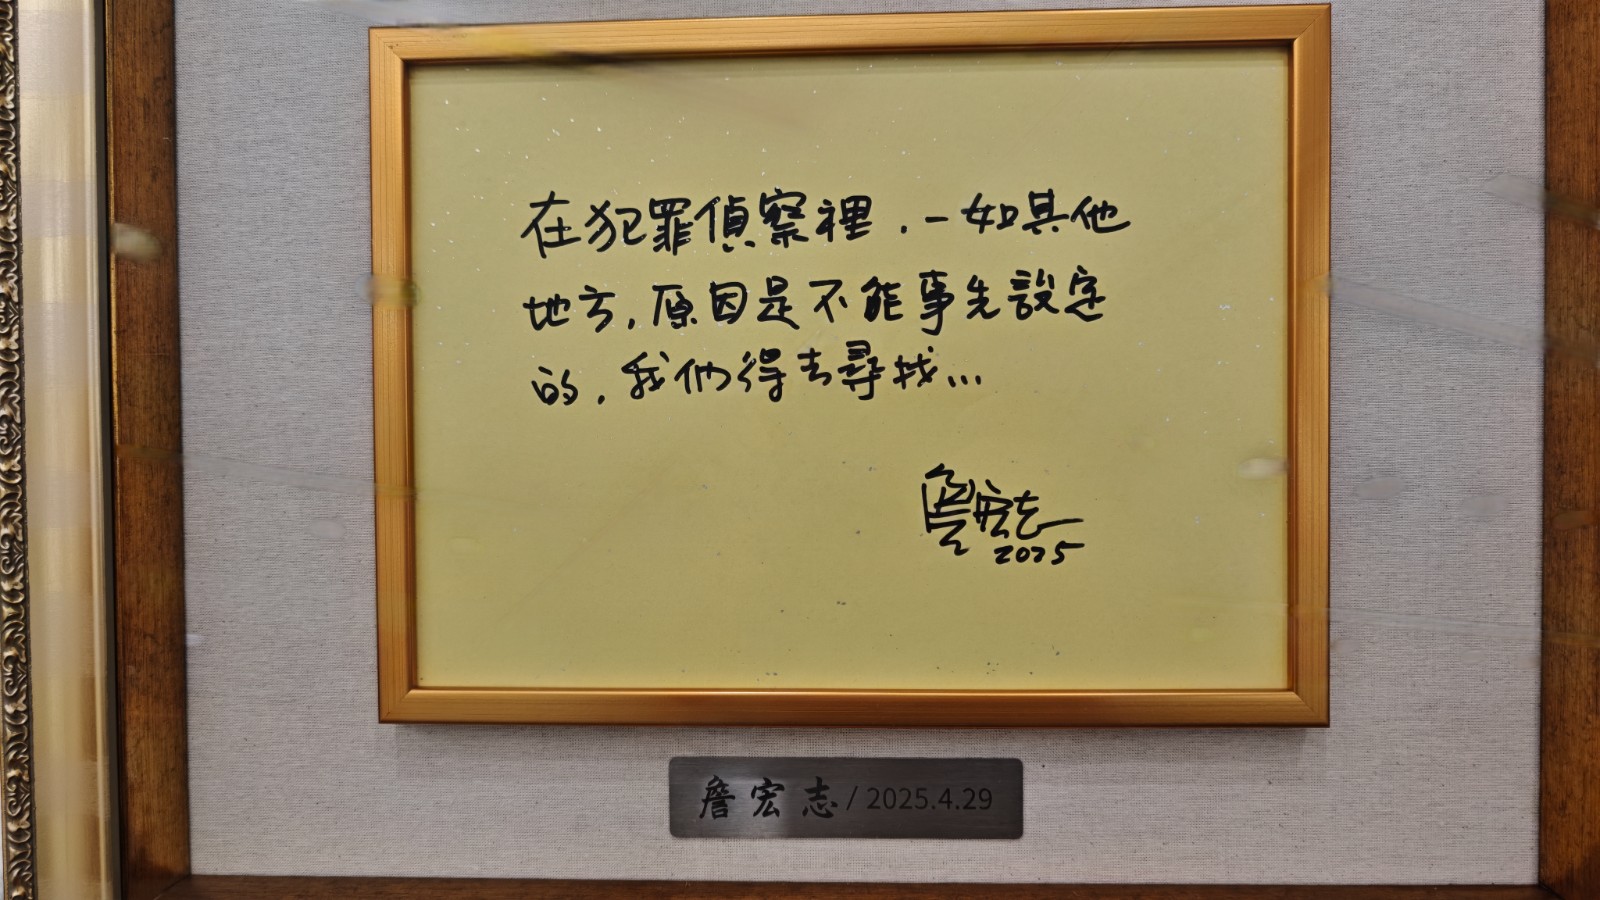 在犯罪偵察裡，一如其他
地方，原因是不能事先設定
的，我們得去尋找...
詹宏志
2025
詹宏志/2025.4.29